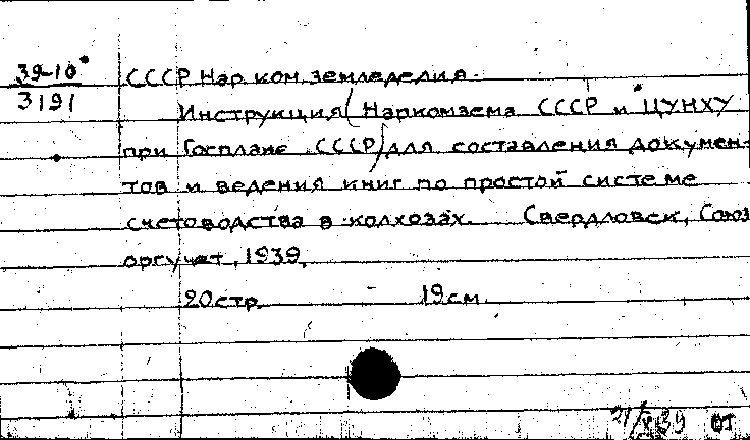 39-10
3191
СССР Нар.ком.земледелия.
Инструкция (Наркомзема СССР и ЦУНХУ
при Госплане СССР) для составления докумен-
тов и ведения книг по простой системе
счетоводства в колхозах. Свердловск, Союз
оргучет, 1939.
20стр. 19см.
21/X 39